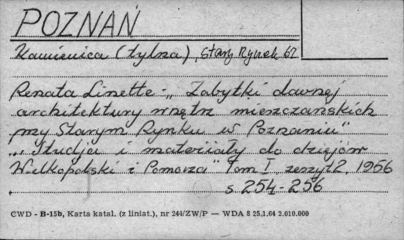 POZNAŃ
Kamienica (tylna), Stary Rynek 62
Renata Linette - „Zabytki dawnej
architektury wnętrz mieszczańskich
przy Starym Rynku w Poznaniu"
„Studja i materiały do dziejów
Wielkopolski i Pomorza" Tom I, zeszyt 2, 1956
s 254-256
CWD - B-15b, Karta katal. (z liniat.), nr 244/ZW/P — WDA 8 25.1.64 2.010.000